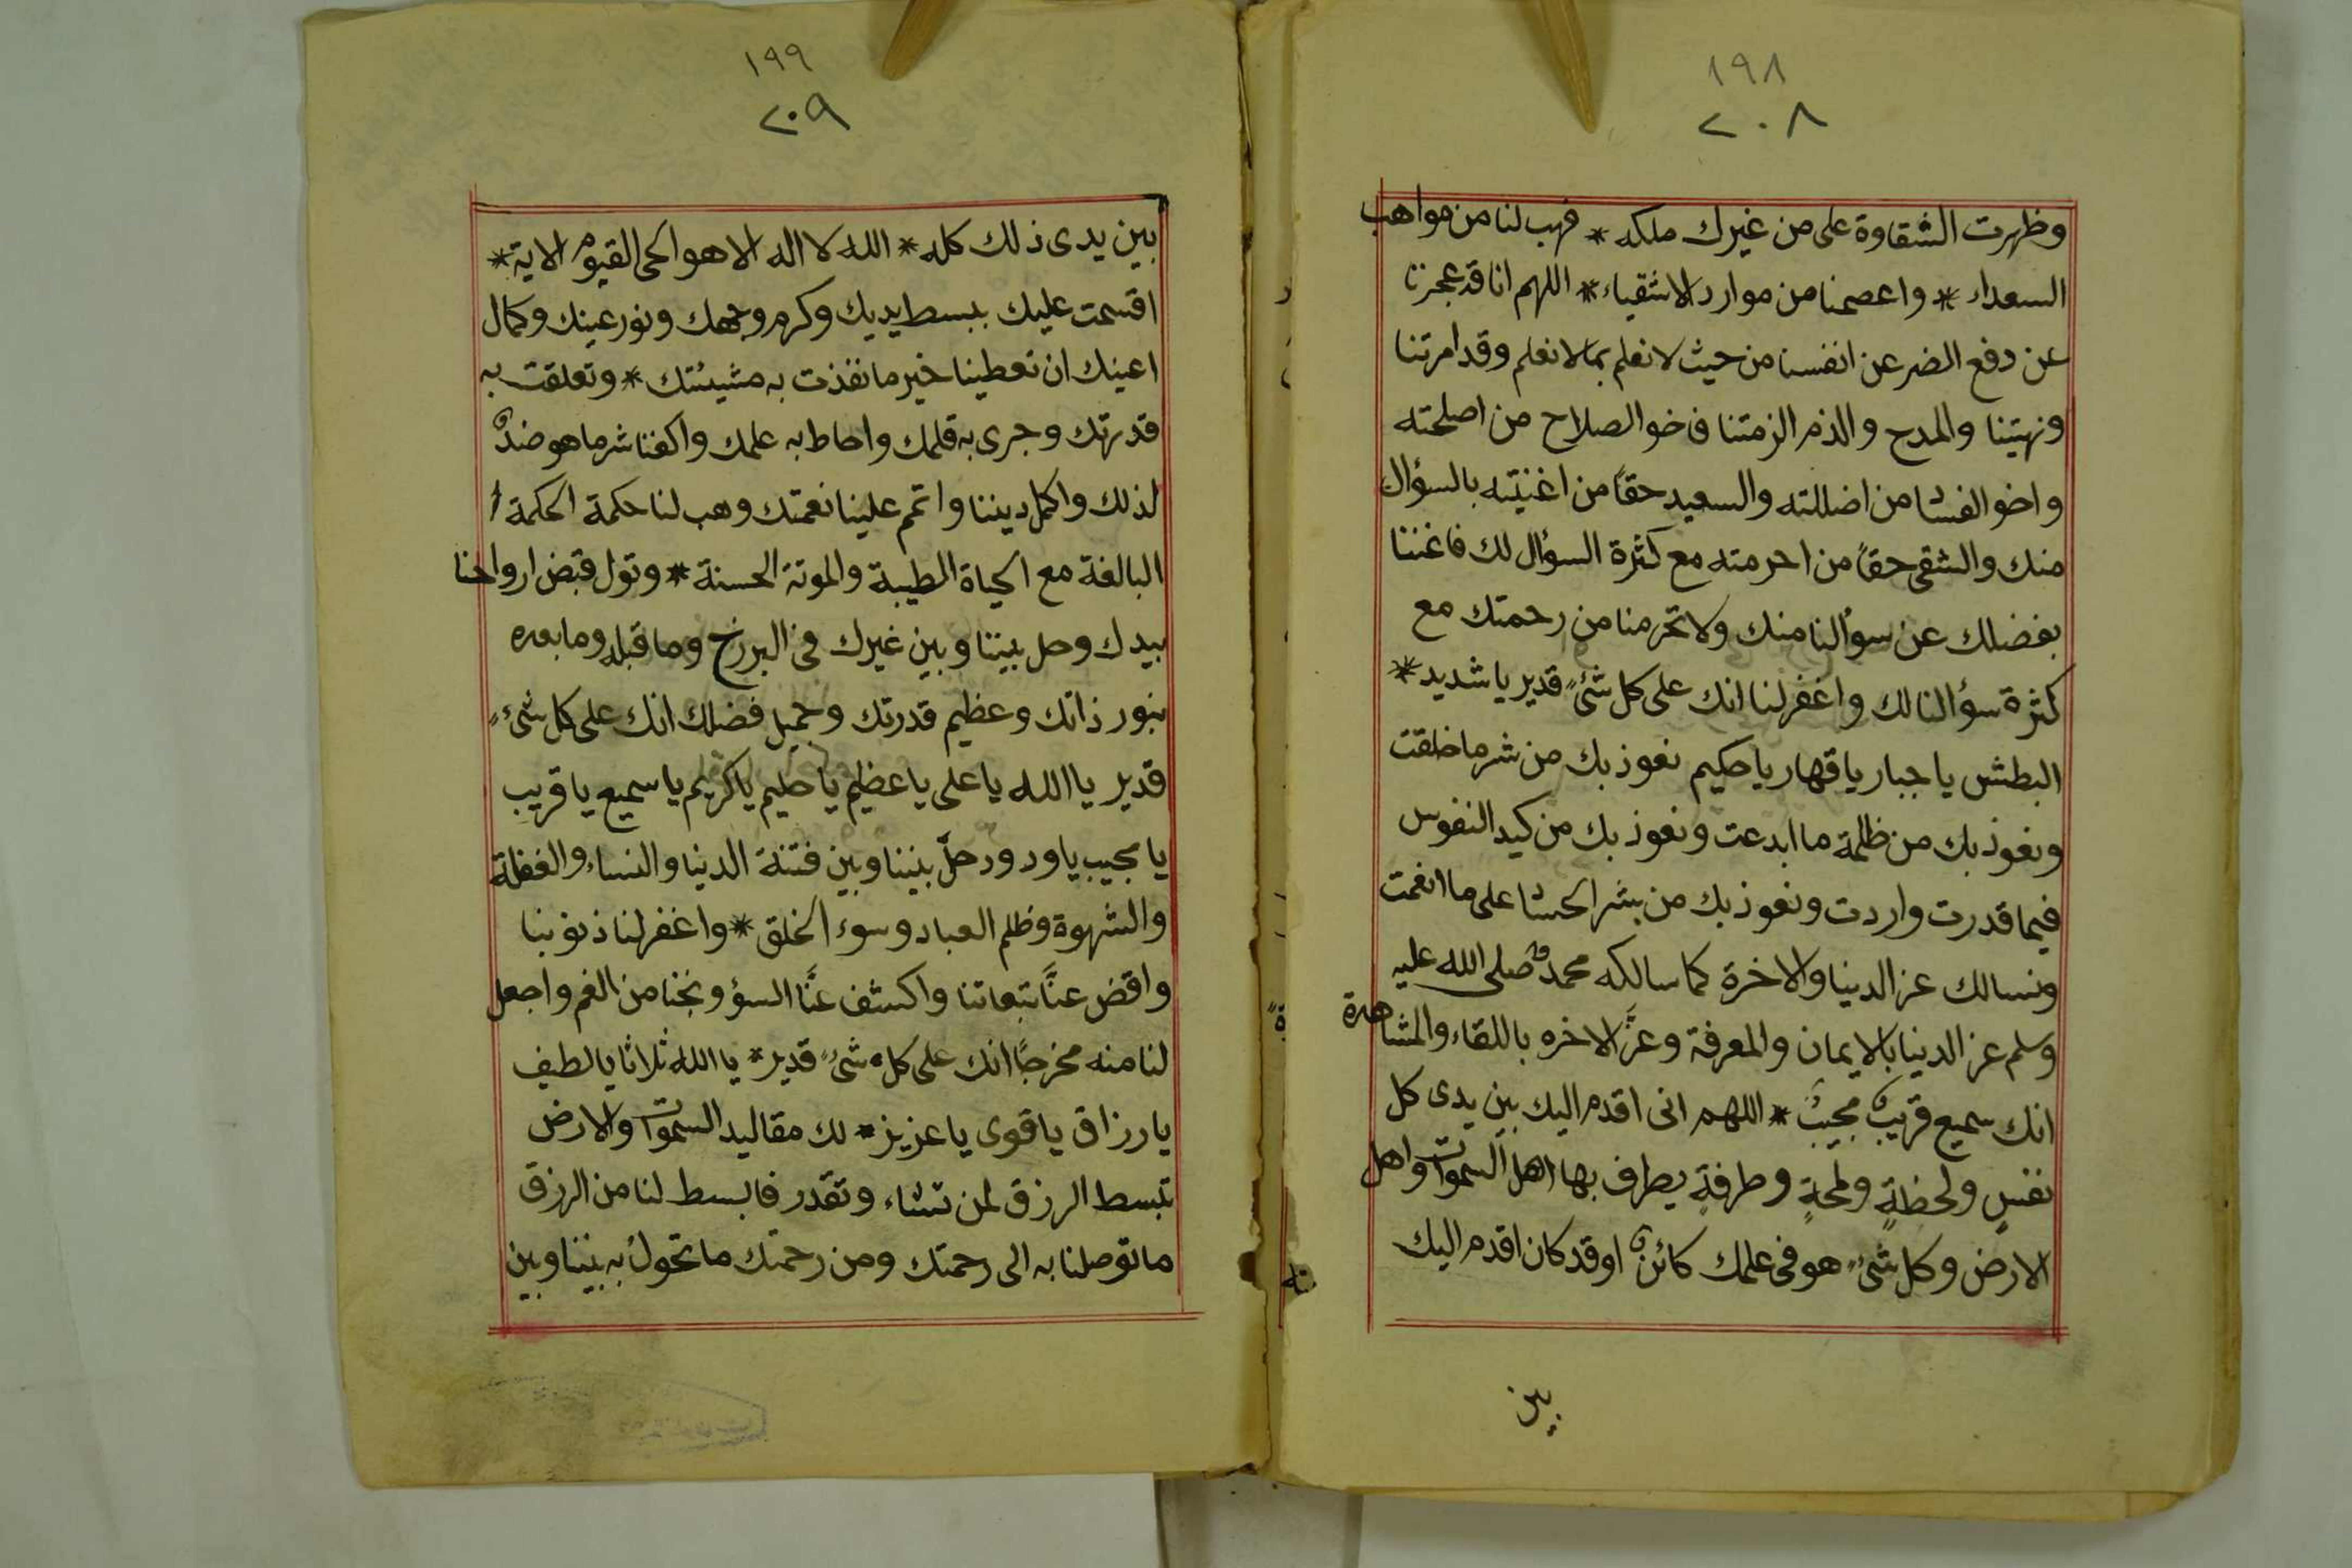 ١٩٨
٢٠٨
وظهرت الشقاوة على من غيرك ملكه * فهب لنا من مواهب
السعداء * واعصمنا من موارد الاشقياء * اللهم انا قد عجزنا
عن دفع الضر عن انفسنا من حيث لا نعلم بما لا نعلم وقد امرتنا
ونهيتنا والمدح والذم الزمتنا فاخو الصلاح من اصلحته
واخو الفسا من اضللته والسعيد حقاً من اغنيته بالسؤال
منك والشقى حقاً من احرمته مع كثرة السؤال لك فاغننا
بفضلك عن سوألنا منك ولا تحرمنا من رحمتك مع
كثرة سؤالنا لك واغفر لنا انك على كل شئٍ قدير يا شديد *
البطش يا جبار يا قهار يا حكيم نعوذ بك من شر ما خلقت
ونعوذ بك من ظلمة ما ابدعت ونعوذ بك من كيد النفوس
فيما قدرت واردت ونعوذ بك من شر الحسا على ما انعمت
ونسالك عز الدنيا والاخرة كما سالكه محمد صلى الله عليه
وسلم عز الدنيا بالايمان والمعرفة وعزَّ الاخره باللقاء والمشاهدة
انك سميع قريبٌ مجيبٌ * اللهم انى اقدم اليك بين يدى كل
نفسٍ ولحظةٍ ولمحةٍ وطرفةٍ يطرف بها اهل السموات واهل
الارض وكل شئٍ هو فى علمك كائنٌ او قد كان اقدم اليك
بين
١٩٩
٢٠٩
بين يدى ذلك كله * الله لا اله الا هو الحى القيوم الاية *
اقسمت عليك ببسط يديك وكرم وجهك ونور عينك وكمال
اعينك ان تعطينا خير ما نفذت به مشيئتك * وتعلقت به
قدرتك وجرى به قلمك واحاط به علمك واكفنا شر ما هو ضدٌ
لذلك واكمل ديننا واتمم علينا نعمتك وهب لنا حكمة الحكمة
البالغة مع الحياة الطيبة والموتة الحسنة * وتول قبض ارواحنا
بيدك وحل بيننا وبين غيرك فى البرزخ وما قبله وما بعده
بنور ذاتك وعظيم قدرتك وجميل فضلك انك على كل شئٍ
قدير يا الله يا على يا عظيم يا حليم يا كريم يا سميع يا قريب
يا مجيب يا ودود حلّ بيننا وبين فتنة الدنيا والنساء والغفلة
والشهوة وظلم العباد وسوء الخلق * واغفر لنا ذنوبنا
واقض عنَّا تبعاتنا واكشف عنَّا السؤ ونجنا من الغم واجعل
لنا منه مخرجًا انك على كل شئٍ قدير * يا الله ثلاثا يا لطيف
يا رزاق يا قوى يا عزيز * لك مقاليد السموات والارض
تبسط الرزق لمن تشاء وتقدر فابسط لنا من الرزق
ما توصلنا به الى رحمتك ومن رحمتك ما تحول به بيننا وبين